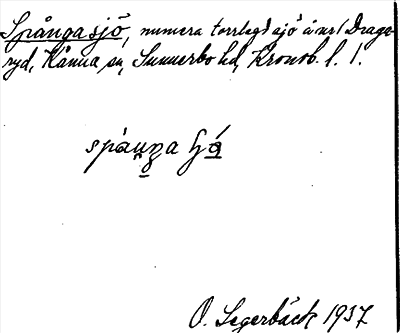 Spångasjö, numera torrlagd sjö å nr 1 Drage-
ryd, Kånna sn, Sunnerbo hd, Kronob. l.
spå
O. Segerbäck 1937